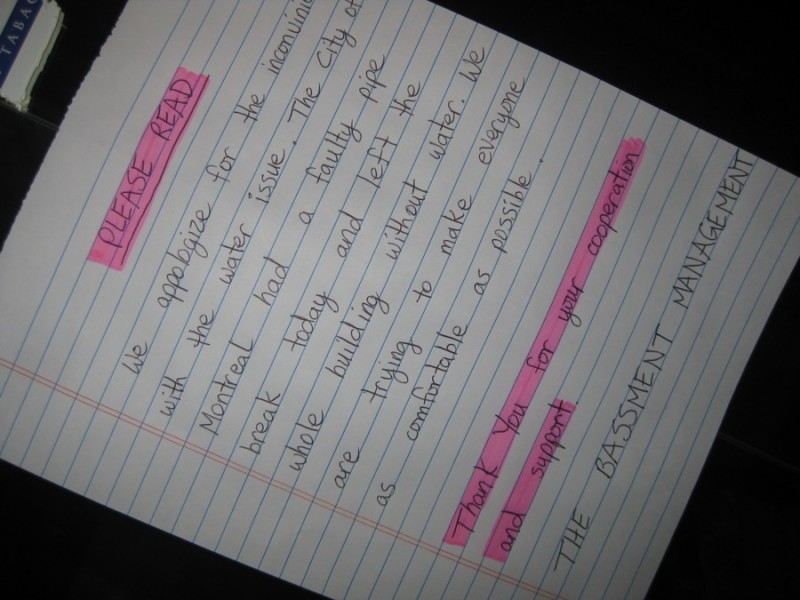 TABAC
PLEASE READ
We appologize for the inconvinie
with the water issue. The City of
Montreal had a faulty pipe
break today and left the
whole building without water. We
are trying to make everyone
as comfortable as possible.
Thank You for your cooperation
and support.
THE BASSMENT MANAGEMENT